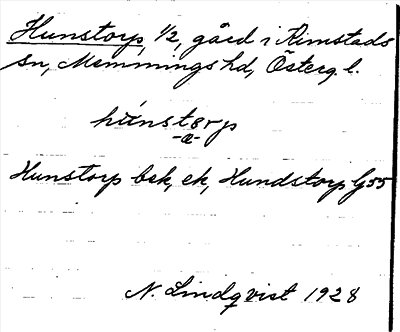 Hunstorp, 1/2, gård i Rimstads
sn, Memmings hd, Österg. l.
húnstǝrp
-a-
Hunstorp bek, ek, Hundstorp G55
N. Lindqvist 1928